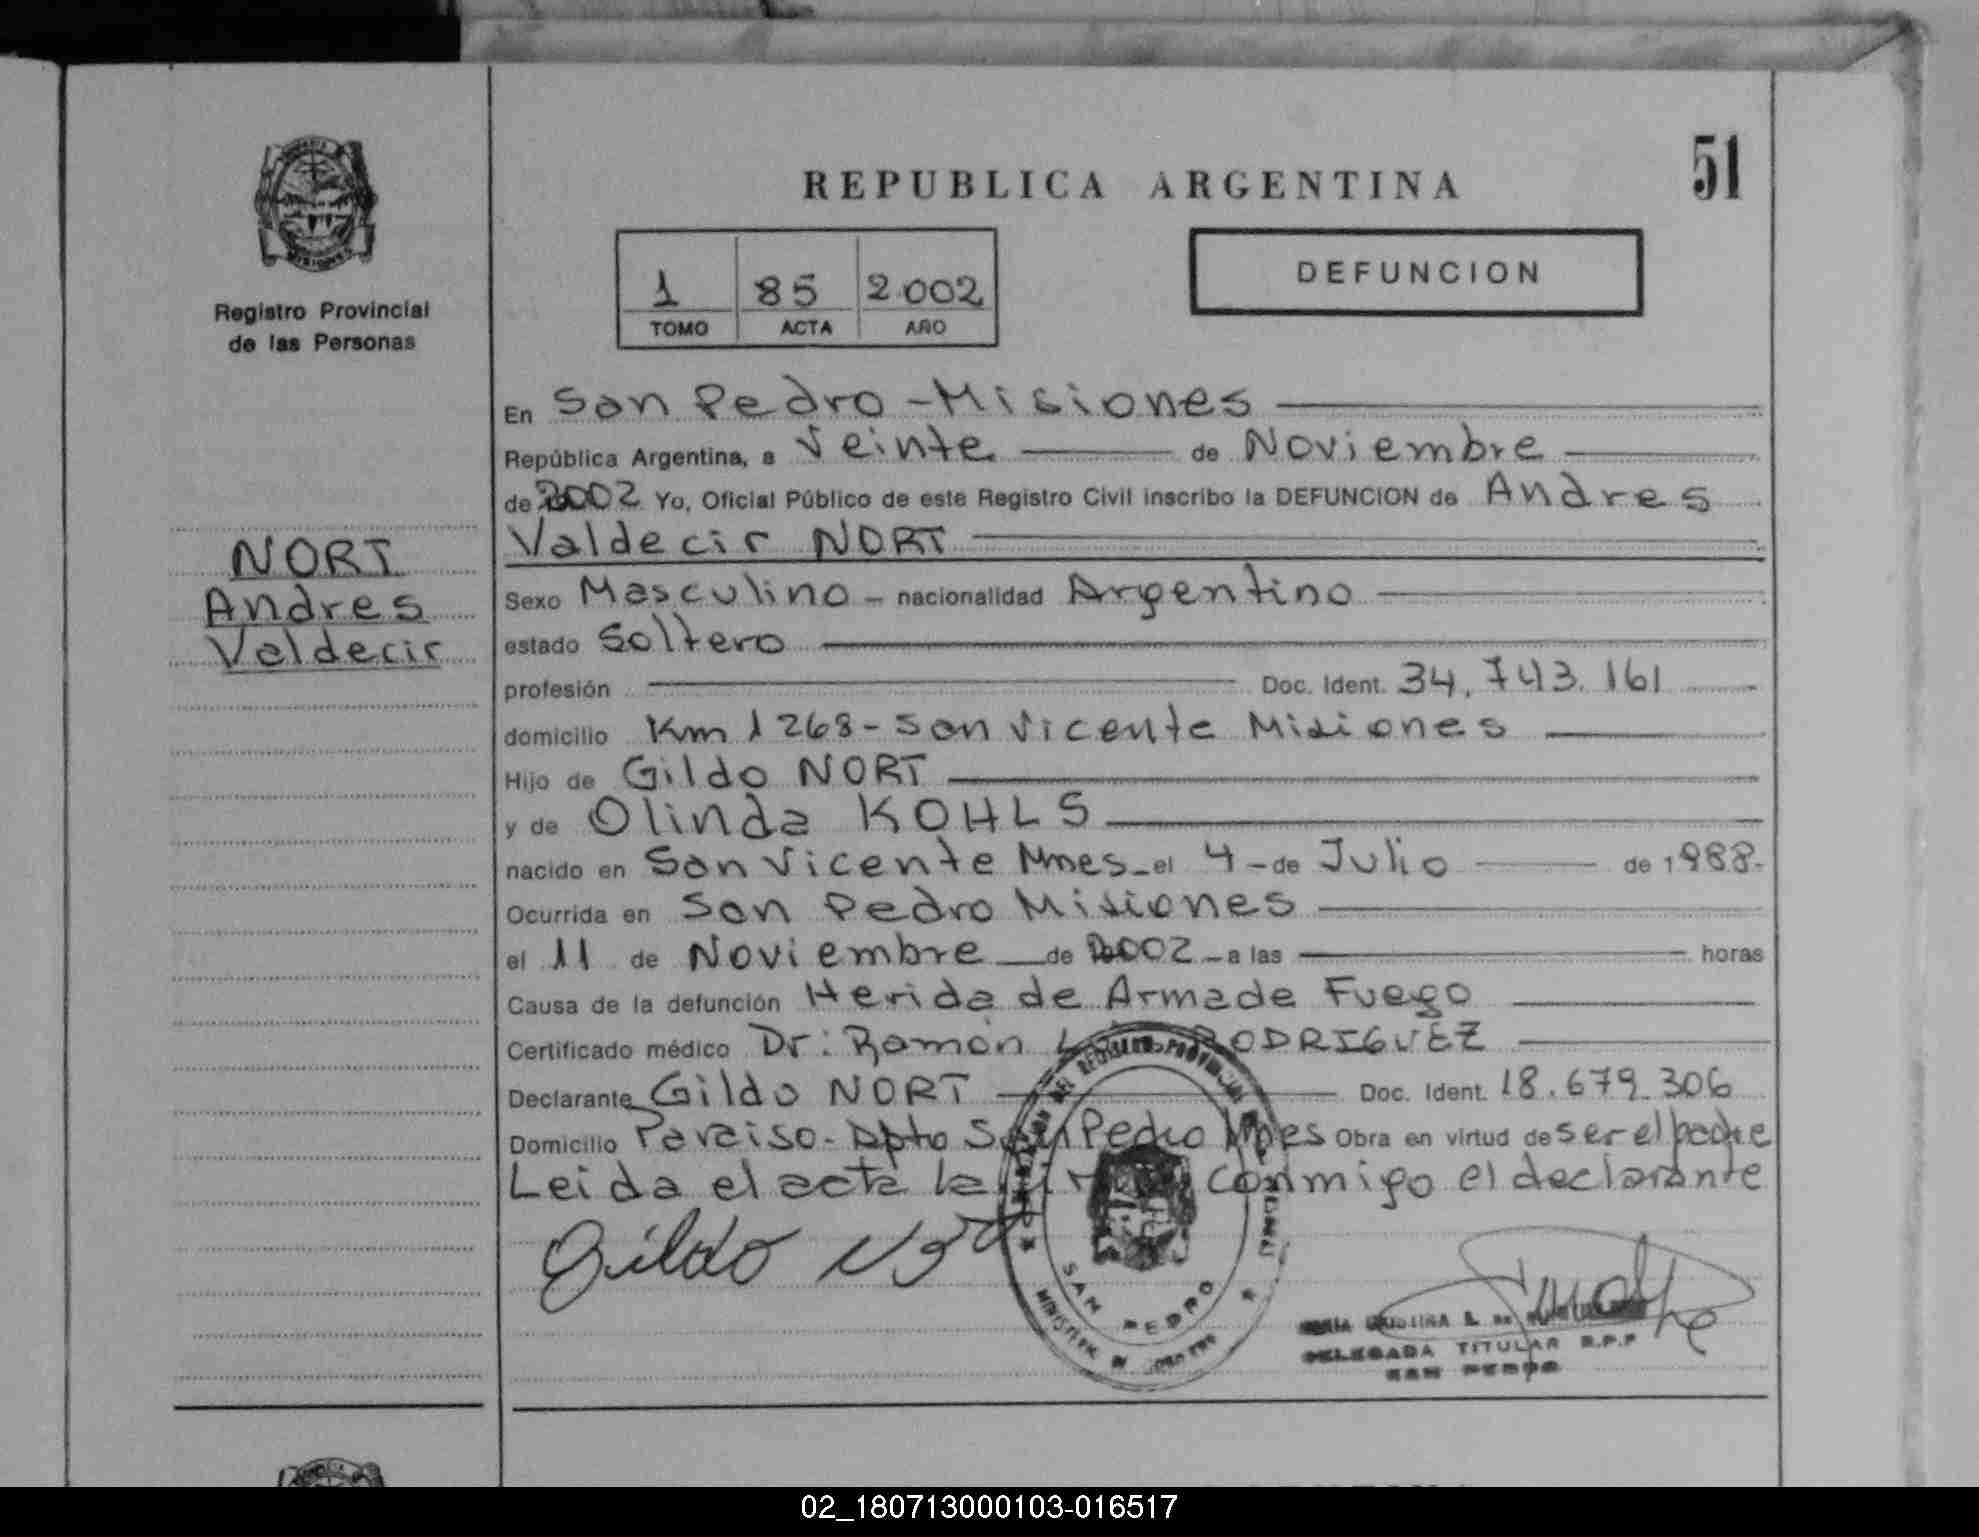 51
REPUBLICA ARGENTINA
1 85 2.002
TOMO ACTA AÑO
DEFUNCION
Registro Provincial
de las Personas
NORT
Andres
Valdecir
En San Pedro - Misiones
República Argentina, a Veinte de Noviembre
de 2002 Yo, Oficial Público de este Registro Civil inscribo la DEFUNCION de Andres
Valdecir NORT
Sexo Masculino - nacionalidad Argentino
estado Soltero
profesión Doc. Ident. 34.743.161
domicilio Km 1268 - San Vicente Misiones
Hijo de Gildo NORT
y de Olinda KOHLS
nacido en San Vicente Mnes - el 4 - de Julio de 1988.
Ocurrida en San Pedro Misiones
el 11 de Noviembre de 2002 - a las horas
Causa de la defunción Herida de Arma de Fuego
Certificado médico Dr: Ramón RODRIGUEZ
Declarante Gildo NORT Doc. Ident. 18.679.306
Domicilio Paraiso - Dpto San Pedro Mnes Obra en virtud de ser el padre
Leida el acta la conmigo el declarante
Gildo Nort
SAN PEDRO
DELEGADA TITULAR R.P.P
SAN PEDRO
02_180713000103-016517